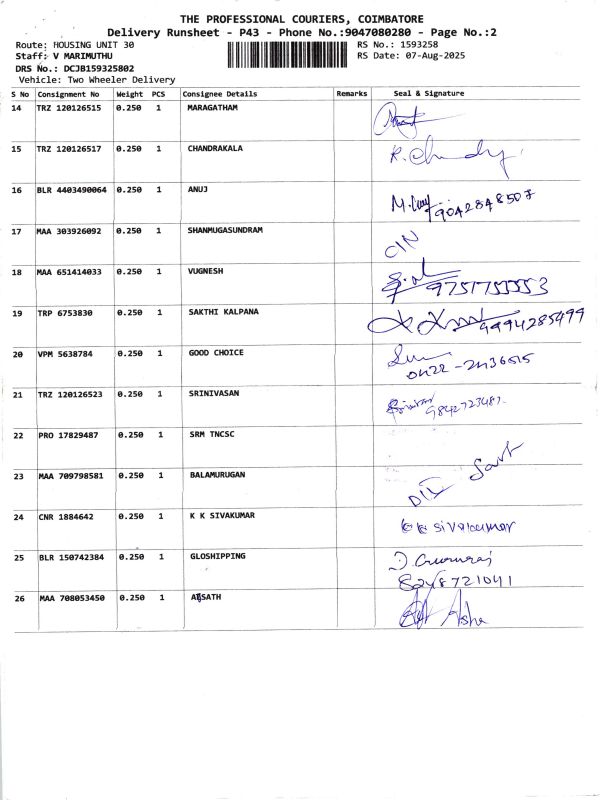 THE PROFESSIONAL COURIERS, COIMBATORE
Delivery Runsheet - P43 - Phone No.:9047080280 - Page No.:2
Route: HOUSING UNIT 30
RS No.: 1593258
Staff: V MARIMUTHU
RS Date: 07-Aug-2025
DRS No.: DCJB159325802
Vehicle: Two Wheeler Delivery
S No Consignment No Weight PCS Consignee Details Remarks Seal & Signature
14 TRZ 120126515 0.250 1 MARAGATHAM
15 TRZ 120126517 0.250 1 CHANDRAKALA
16 BLR 4403490064 0.250 1 ANUJ
9042848507
17 MAA 303926092 0.250 1 SHANMUGASUNDRAM
CIN
18 MAA 651414033 0.250 1 VUGNESH
9751755553
19 TRP 6753830 0.250 1 SAKTHI KALPANA
9994285499
20 VPM 5638784 0.250 1 GOOD CHOICE
0422-2436515
21 TRZ 120126523 0.250 1 SRINIVASAN
9842723487
22 PRO 17829487 0.250 1 SRM TNCSC
23 MAA 709798581 0.250 1 BALAMURUGAN
24 CNR 1884642 0.250 1 K K SIVAKUMAR
KK Sivakumar
25 BLR 150742384 0.250 1 GLOSHIPPING
8248721041
26 MAA 708053450 0.250 1